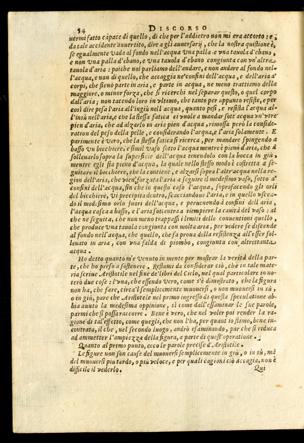 54 DISCORSO
uermi fatto capace di quello, di che per l'addietro non mi era accorto se
da tale accidente auuertito, dire a gli auuersarij, che la nostra questione è,
se egualmente vada al fondo nell'acqua vna palla e vna tauola d'ebano,
e non vna palla d'ebano, e vna tauola d'ebano congiunta con vn'altra
tauola d'aria: poiche noi parliamo dell'andare, e non andare al fondo nel-
l'acqua, e non di quello, che accaggia ne'confini dell'acqua, e dell'aria a'
corpi, che sieno parte in aria, e parte in acqua, ne meno trattiamo della
maggiore, o minor forza, che si ricerchi nel separar questo, o quel corpo
dall'aria; non tacendo loro in vltimo, che tanto per appunto resiste, e per
così dire pesa l'aria all'ingiù nell'acqua, quanto pesi, e resista l'acqua al-
l'insù nell'aria, e che la stessa fatica ci vuole a mandar sott'acqua vn vtre
pien d'aria, che ad alzarlo in aria pien d'acqua, rimossa però la conside-
ration del peso della pelle, e considerando l'acqua, e l'aria solamente. E
parimente è vero, che la stessa fatica si ricerca, per mandare spingendo a
basso vn bicchiere, o simil vaso sotto l'acqua mentre è pien d'aria, che a
solleuarlo sopra la superficie dell'acqua tenendolo con la bocca in giù
mentre egli sia pieno d'acqua, la quale nello stesso modo è costretta a se-
guitare il bicchiere, che la contiene, e alzarsi sopra l'altr'acqua nella re-
gion dell'aria, che vien forzata l'aria a seguire il medesimo vaso, sotto a'
confini dell'acqua, sin che in questo caso l'acqua, soprafacendo gli orli
del bicchiere, vi precipita dentro, scacciandone l'aria, e in quello vscen-
do il medesimo orlo fuori dell'acqua, e peruenendo a'confini dell'aria,
l'acqua casca a basso, e l'aria sottentra a riempiere la cauità del vaso: al
che ne seguita, che non meno trapassi i limiti delle conuenzioni quello,
che produce vna tauola congiunta con molta aria, per vedere se discende
al fondo nell'acqua, che quello, che fa proua della resistenza all'esser sol-
leuato in aria, con vna falda di piombo, congiunta con altrettanta
acqua.
Ho detto quanto m'è venuto in mente per mostrar la verità della par-
te, che ho preso a sostenere. Restami da considerar ciò, che in tale mate-
ria scriue Aristotile nel fine de' libri del Cielo, nel qual particolare io no-
terò due cose: l'vna, che essendo vero, come s'è dimostrato, che la figura
non ha, che fare, circa'l semplicemente muouersi, o non muouersi in sù,
o in giù, pare che Aristotile nel primo ingresso di questa speculazione ab-
bia auuto la medesima oppinione, sì come dall'esaminar le sue parole,
parmi che si possa raccorre. Bene è vero, che nel voler poi render la ra-
gione di tal effetto, come quegli, che non l'ha, per quanto io stimo, bene in-
contrata, il che, nel secondo luogo, andrò esaminando, par che si riduca
ad ammetter l'ampiezza della figura, a parte di quest'operatione.
Quanto al primo punto, ecco le parole precise d'Aristotile.
Le figure non son cause del muouersi semplicemente in giù, o in sù, mà
del muouersi più tardo, o più veloce, e per quali cagioni ciò accaggia, non è
difficile il vederlo. Qui